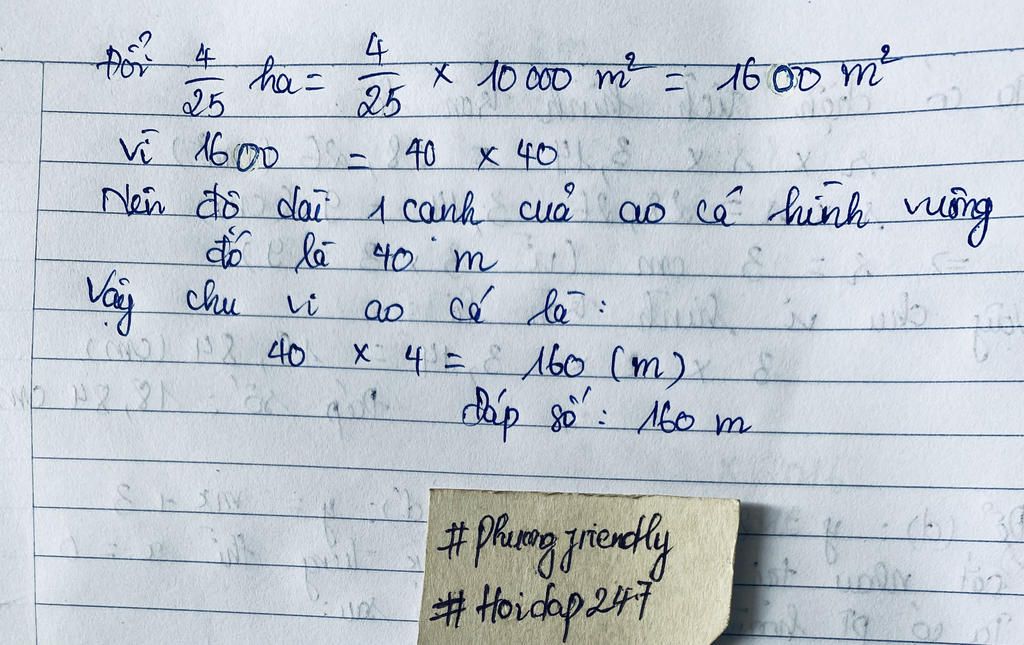 Đổi 4/25 ha = 4/25 × 10 000 m² = 1600 m²
Vì 1600 = 40 × 40
Nên độ dài 1 cạnh của ao cá hình vuông
đó là 40 m
Vậy chu vi ao cá là:
40 × 4 = 160 (m)
Đáp số: 160 m
# Phuong friendly
# Hoidap247